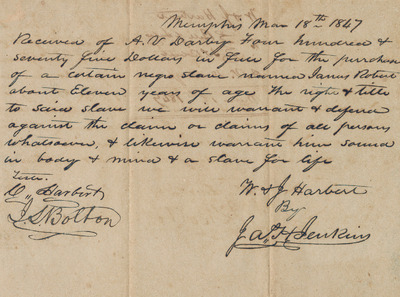 Memphis Mar 18th 1847
Received of A. V. Darby Four hundred &
seventy five Dollars in full for the purchase
of a certain negro slave named James Robert
about Eleven years of age the right & title
to said slave we will warrant & defend
against the claim or claims of all persons
whatsoever, & likewise warrant him sound
in body & mind & a slave for life
Harbert
W & J Harbert
I. S. Bolton
By
Jas H Jenkins